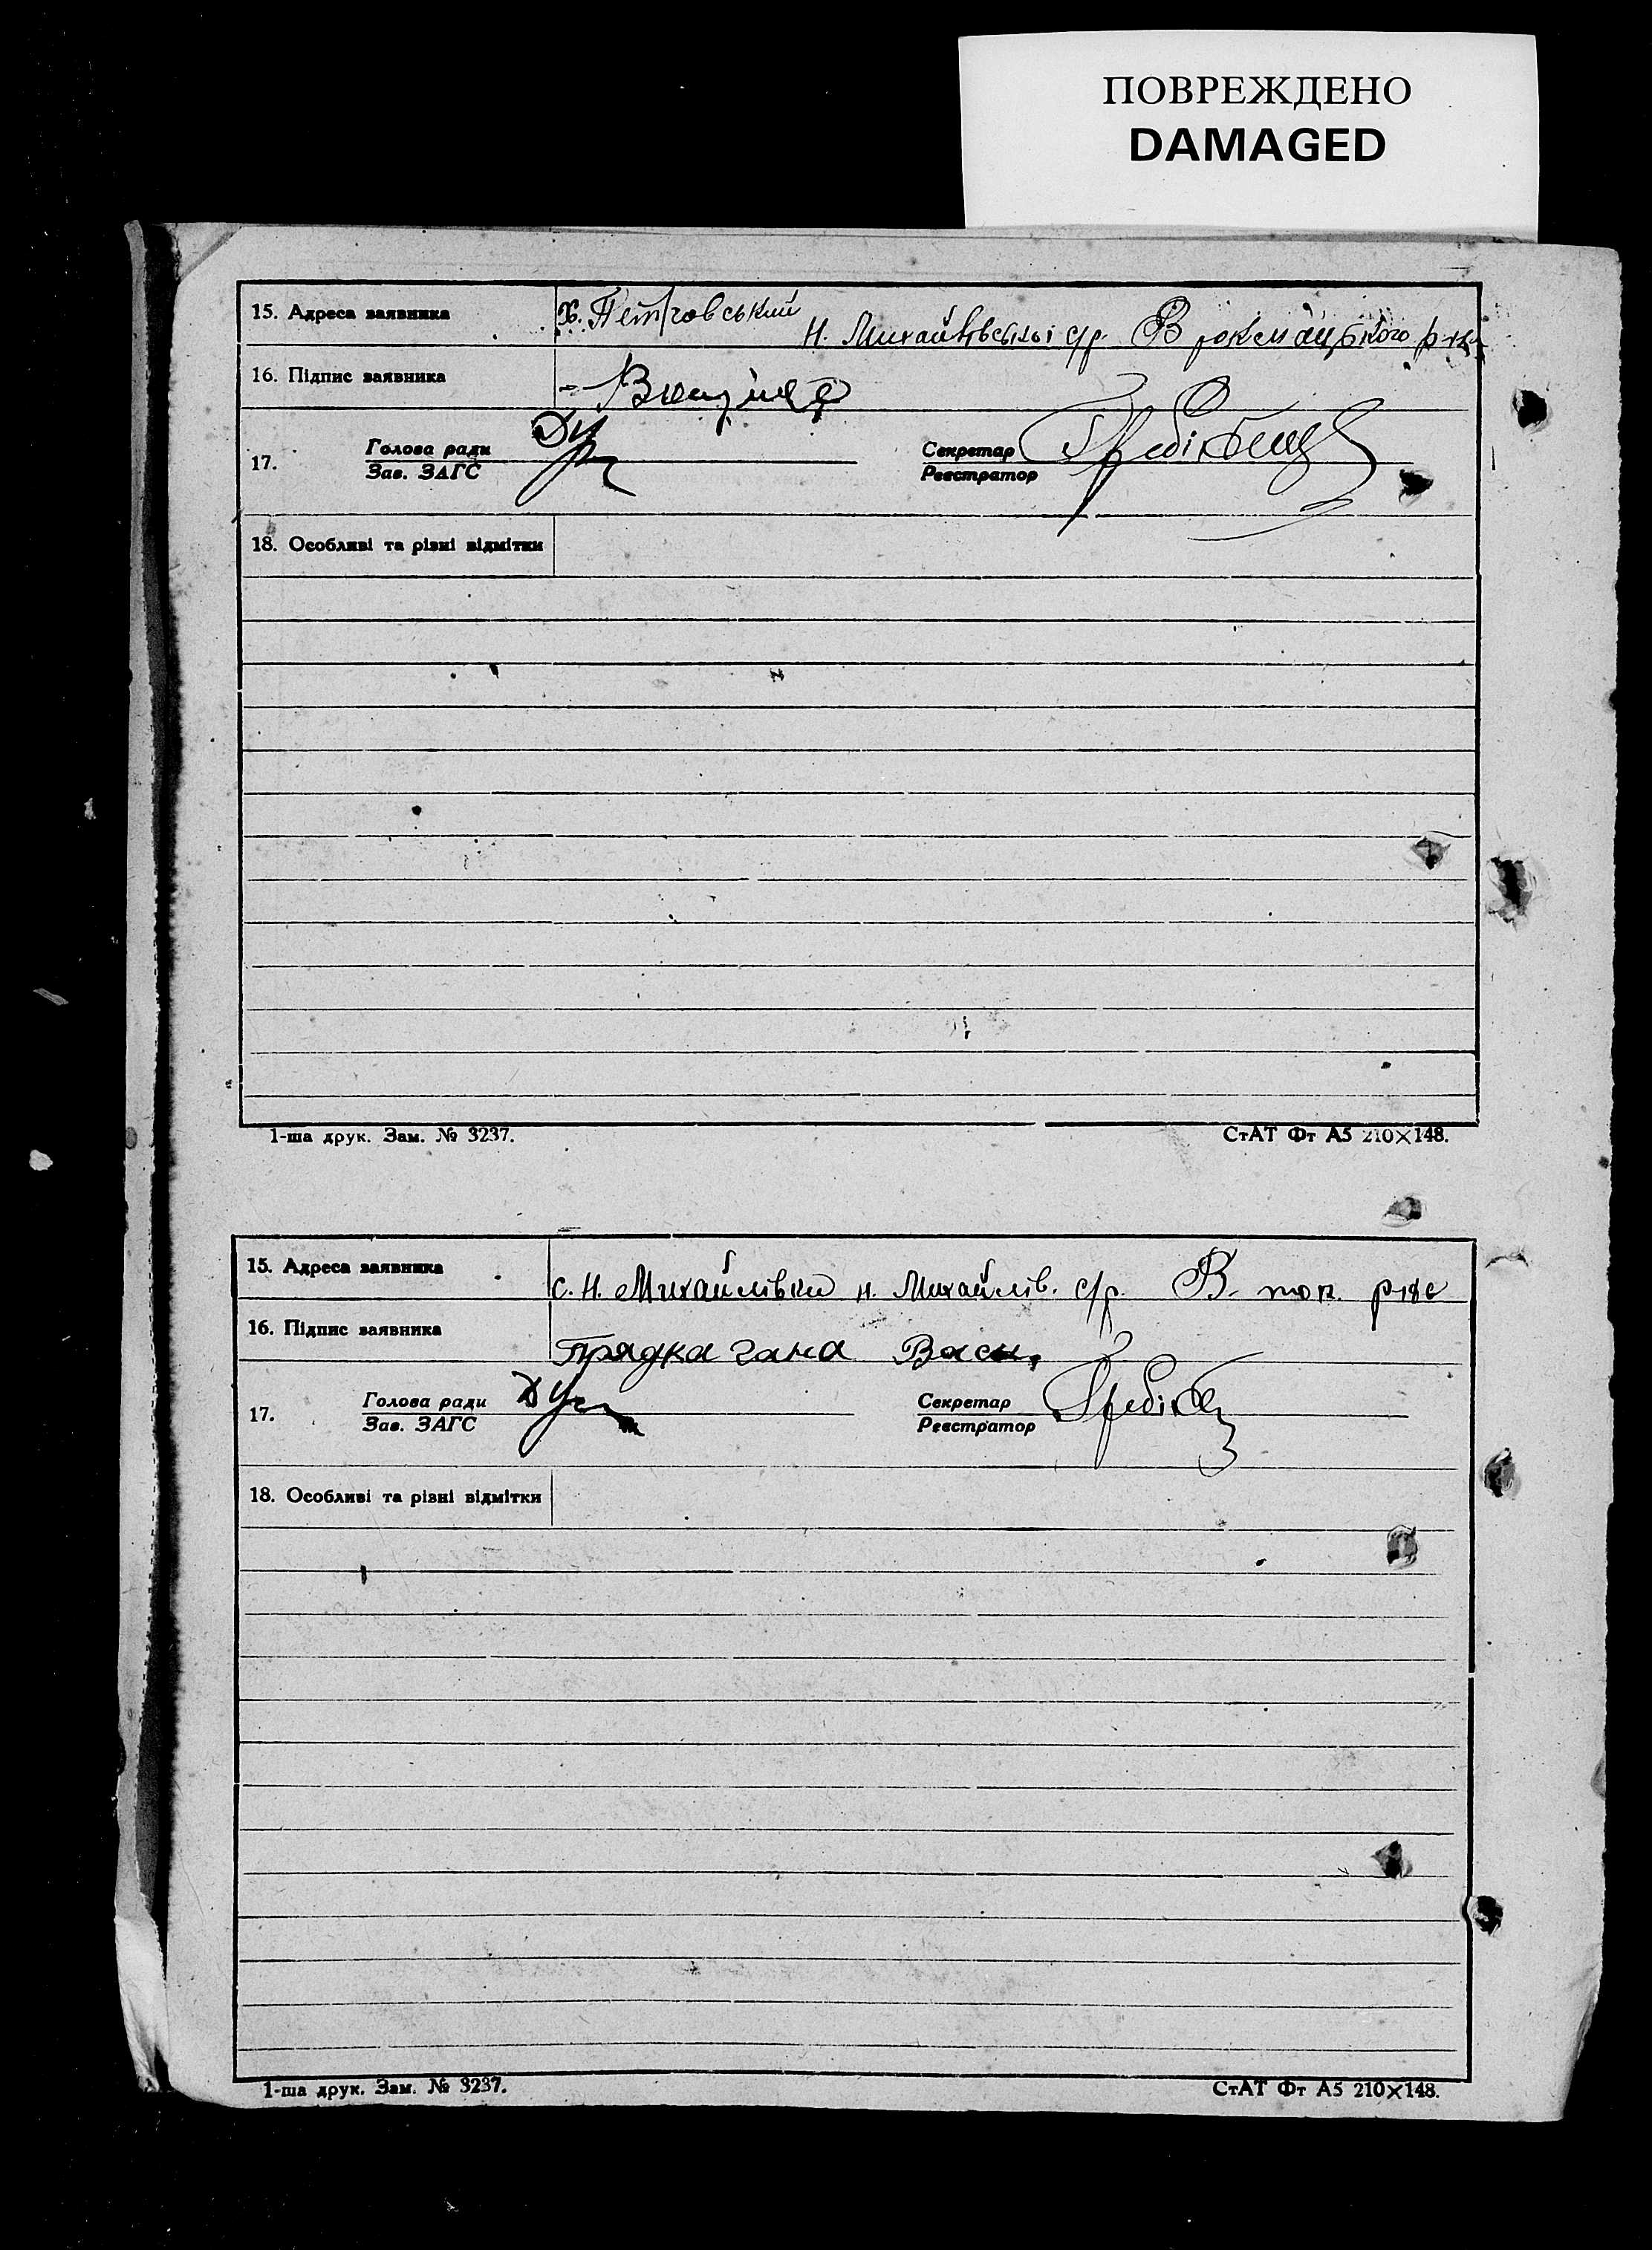 ПОВРЕЖДЕНО
DAMAGED
15. Адреса заявника
х. Петровський
Н. Михайлівської с/р. В токмацького р-ну
16. Підпис заявника
17. Голова ради
Зав. ЗАГС
Секретар
Реєстратор
18. Особливі та різні відмітки
1-ша друк. Зам. № 3237.
СтАТ Фт А5 210×148.
15. Адреса заявника
с. Н. Михайлівки Н. Михайлів. с/р. В. ток. р-не
16. Підпис заявника
Прядка гана Васи
17. Голова ради
Зав. ЗАГС
Секретар
Реєстратор
18. Особливі та різні відмітки
1-ша друк. Зам. № 3237.
СтАТ Фт А5 210×148.